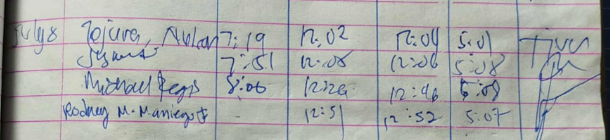 July 8 Tojura, Nylan 7:19 12:02 12:04 5:01
7:51 12:06 12:06 5:08
Michael Regis 8:06 12:29 12:46 5:09
Rodney M. Maniego 12:51 12:52 5:07